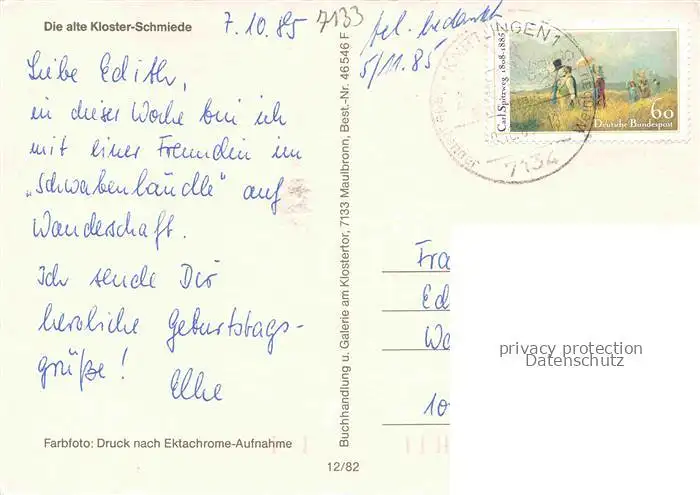 Die alte Kloster-Schmiede
7.10.85
7133
tel. bedankt
5/11.85
Liebe Edith,
in dieser Woche bin ich
mit einer Freundin im
„Schwabenländle" auf
Wanderschaft.
Ich sende Dir
herzliche Geburtstags-
grüße!
Elke
Farbfoto: Druck nach Ektachrome-Aufnahme
12/82
Buchhandlung u. Galerie am Klostertor, 7133 Maulbronn, Best.-Nr. 46 546 F
KNITTLINGEN 1
7134
Carl Spitzweg 1808-1885
60
Deutsche Bundespost
Fra
Ed
Wa
10
privacy protection
Datenschutz